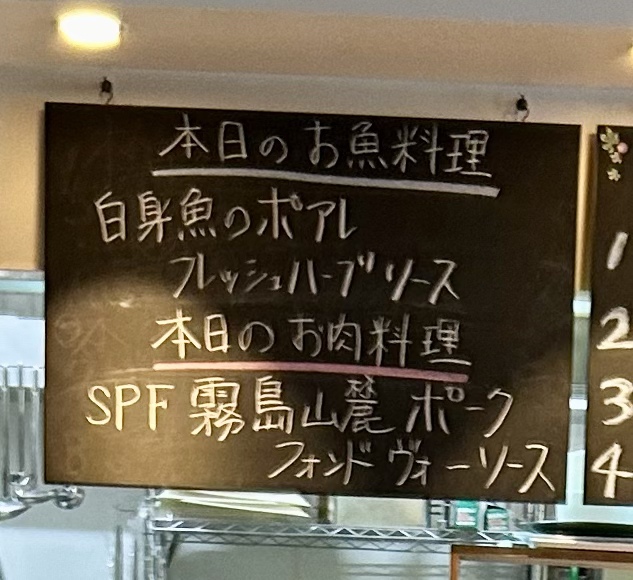 本日のお魚料理
白身魚のポアレ
フレッシュハーブソース
本日のお肉料理
SPF 霧島山麓 ポーク
フォンドヴォーソース
1
2
3
4